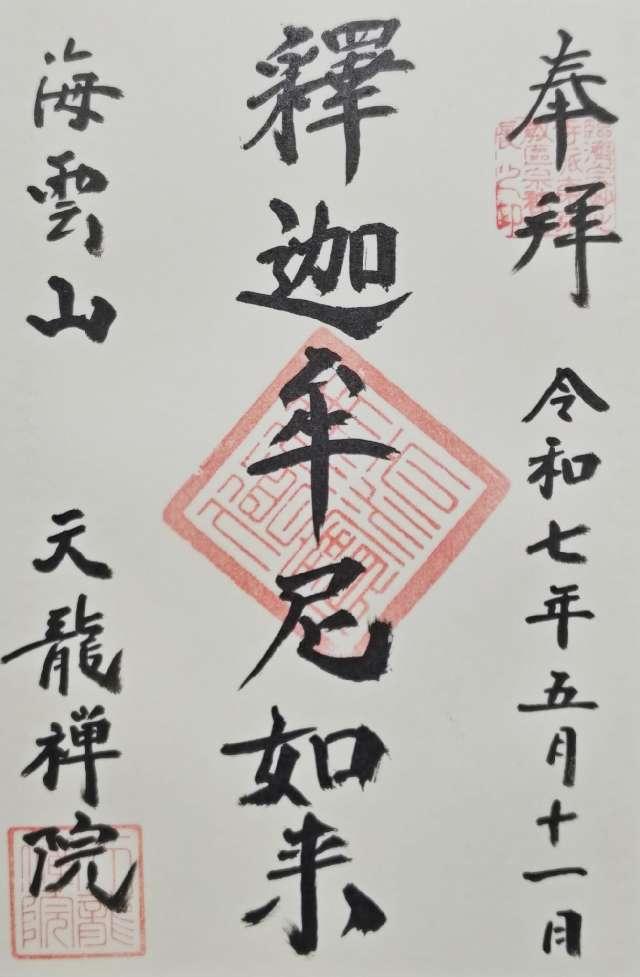 奉拝
令和七年五月十一日
釋迦牟尼如来
海雲山
天龍禅院
天龍禅院